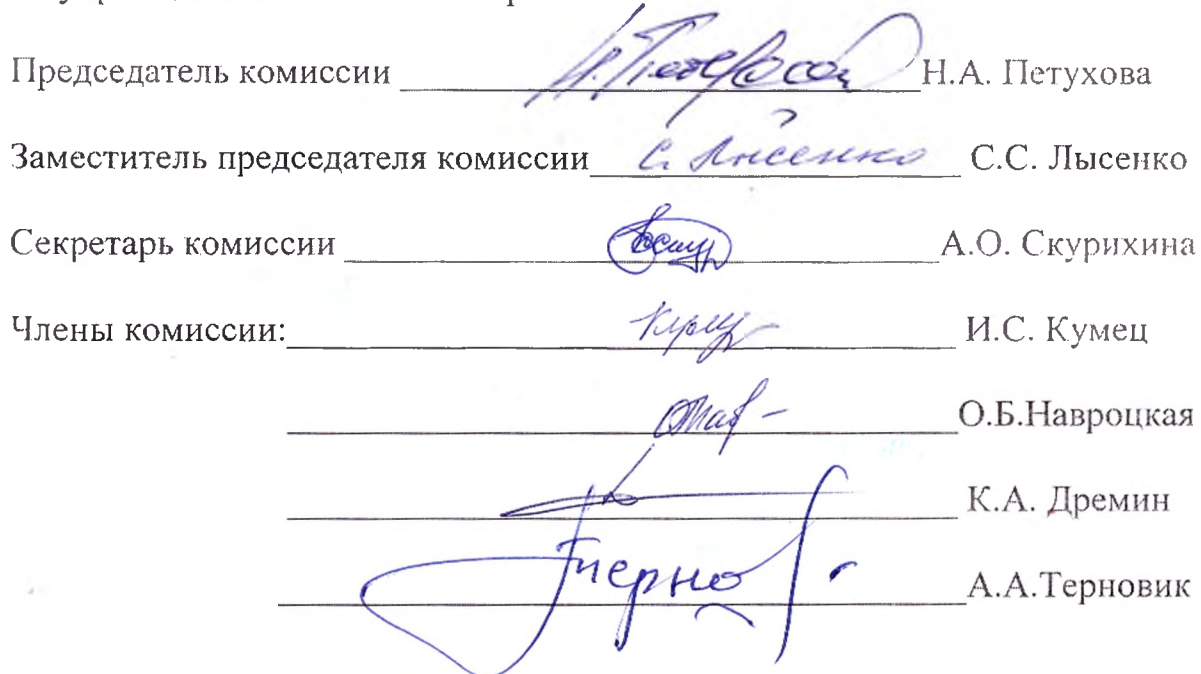 Председатель комиссии Н.А. Петухова
Заместитель председателя комиссии С. Лысенко С.С. Лысенко
Секретарь комиссии А.О. Скурихина
Члены комиссии: И.С. Кумец
О.Б.Навроцкая
К.А. Дремин
А.А.Терновик